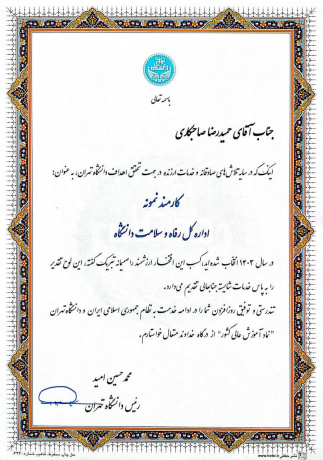 باسمه تعالی
جناب آقای حمیدرضا صاحبکاری
اینک که در سایه تلاش‌های صادقانه و خدمات ارزنده در جهت تحقق اهداف دانشگاه تهران، به عنوان:
کارمند نمونه
اداره کل رفاه و سلامت دانشگاه
در سال ۱۴۰۳ انتخاب شده‌اید، کسب این افتخار ارزشمند را صمیمانه تبریک گفته، این لوح تقدیر
را به پاس خدمات شایسته جنابعالی تقدیم می‌دارد.
تندرستی و توفیق روزافزون شما را در ادامه خدمت به نظام جمهوری اسلامی ایران و دانشگاه تهران
"نماد آموزش عالی کشور" از درگاه خداوند متعال خواستارم.
محمد حسین امید
رئیس دانشگاه تهران